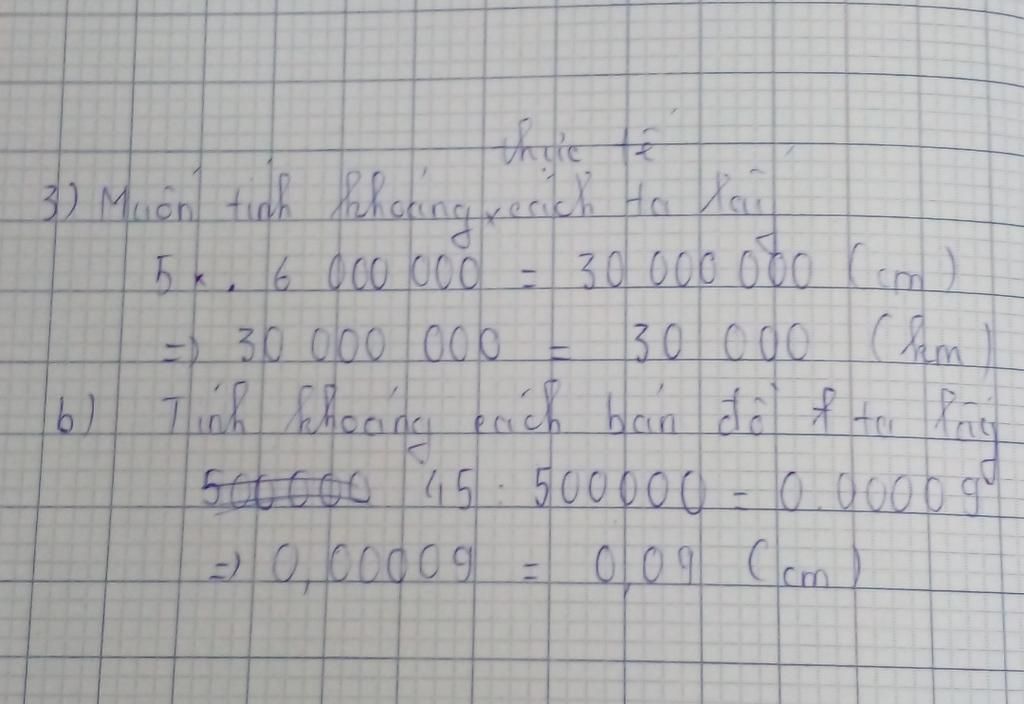 thực tế
3) Muốn tính khoảng cách ta lấy
5 . 6 000 000 = 30 000 000 (cm)
=> 30 000 000 = 30 000 (km)
b) Tính khoảng cách bản đồ ta lấy
500000 45 : 500000 = 0.00009
=> 0,00009 = 0,09 (cm)